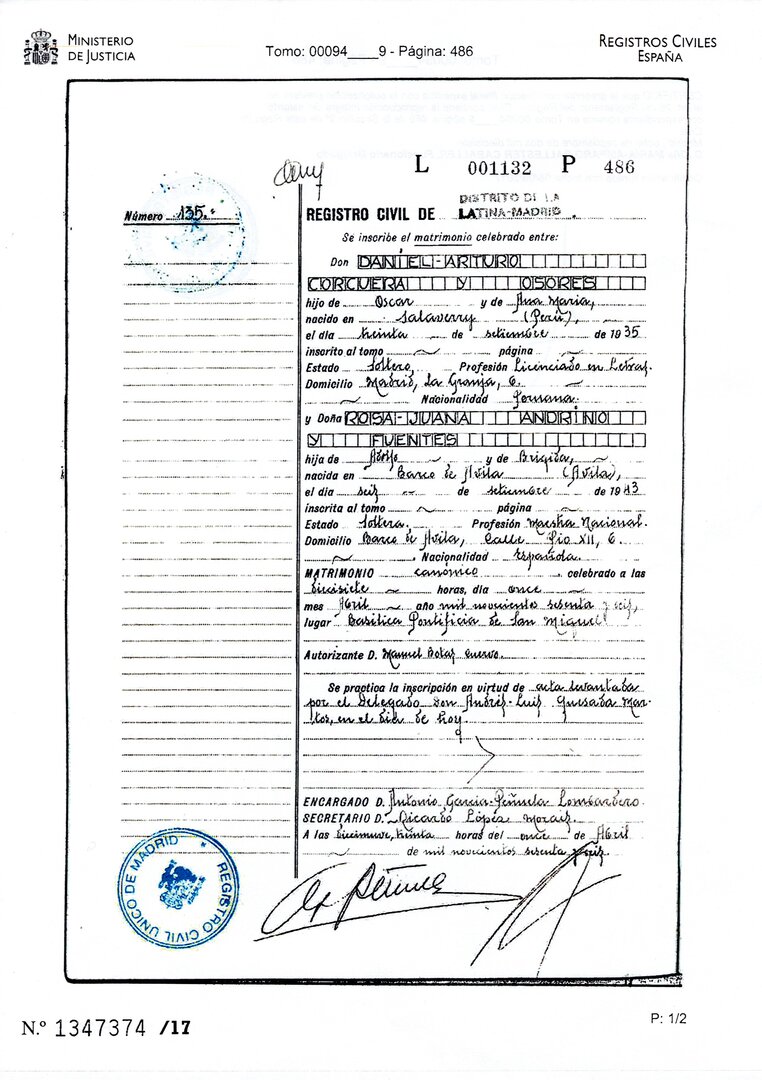 MINISTERIO
DE JUSTICIA
Tomo: 00094____9 - Página: 486
REGISTROS CIVILES
ESPAÑA
L 001132 P 486
Número 135.
DISTRITO DE LA
REGISTRO CIVIL DE LATINA-MADRID.
Se inscribe el matrimonio celebrado entre:
Don DANIEL-ARTURO
CORCUERA Y OSORES
hijo de Oscar y de Ana María,
nacido en Salaverry (Perú),
el día treinta de setiembre de 1935
inscrito al tomo página
Estado soltero, Profesión Licenciado en Letras.
Domicilio Madrid, La Granja, 6.
Nacionalidad Peruana.
y Doña ROSA-JUANA ANDRINO
Y FUENTES
hija de Adolfo y de Brígida,
nacida en Barco de Avila (Avila),
el día seis de setiembre de 1943
inscrita al tomo página
Estado soltera. Profesión Maestra Nacional.
Domicilio Barco de Avila, Calle Pío XII, 6.
Nacionalidad Española.
MATRIMONIO canónico celebrado a las
diecisiete horas, día once
mes Abril año mil novecientos sesenta y seis,
lugar Basílica Pontificia de San Miguel
Autorizante D. Manuel Botas Cuervo.
Se practica la inscripción en virtud de acta levantada
por el Delegado Don Andrés-Luis Quesada Mar-
tos, en el día de hoy.
ENCARGADO D. Antonio García-Peñuela Lombardero.
SECRETARIO D. Ricardo López
A las diecinueve, treinta horas del once de Abril
de mil novecientos sesenta y seis.
REGISTRO CIVIL UNICO DE MADRID
N.º 1347374 /17
P: 1/2